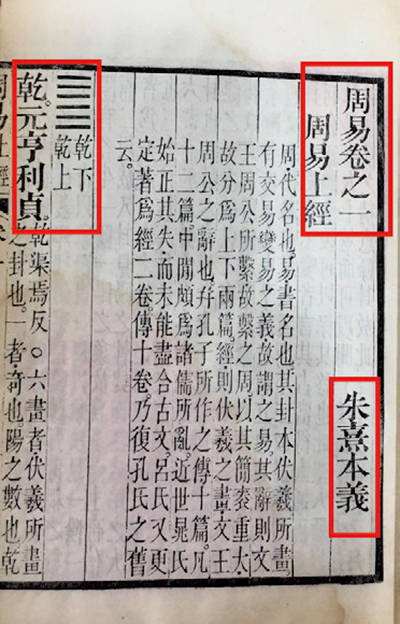 周易卷之一
朱熹本義
周易上經
周代名也。易書名也。其卦本伏羲所畫。
有交易變易之義。故謂之易。其辭則文
王周公所繫。故繫之周。以其簡袠重大。
故分爲上下兩篇。經則伏羲之畫。文王
周公之辭也。幷孔子所作之傳十篇。凡
十二篇。中閒頗爲諸儒所亂。近世晁氏
始正其失。而未能盡合古文。呂氏又更
定著爲經二卷。傳十卷。乃復孔氏之舊
云。
乾下
乾上
乾。元亨利貞。
乾渠焉反○六畫者伏羲所畫
之卦也。一者。奇也。陽之數也。乾
周易上經